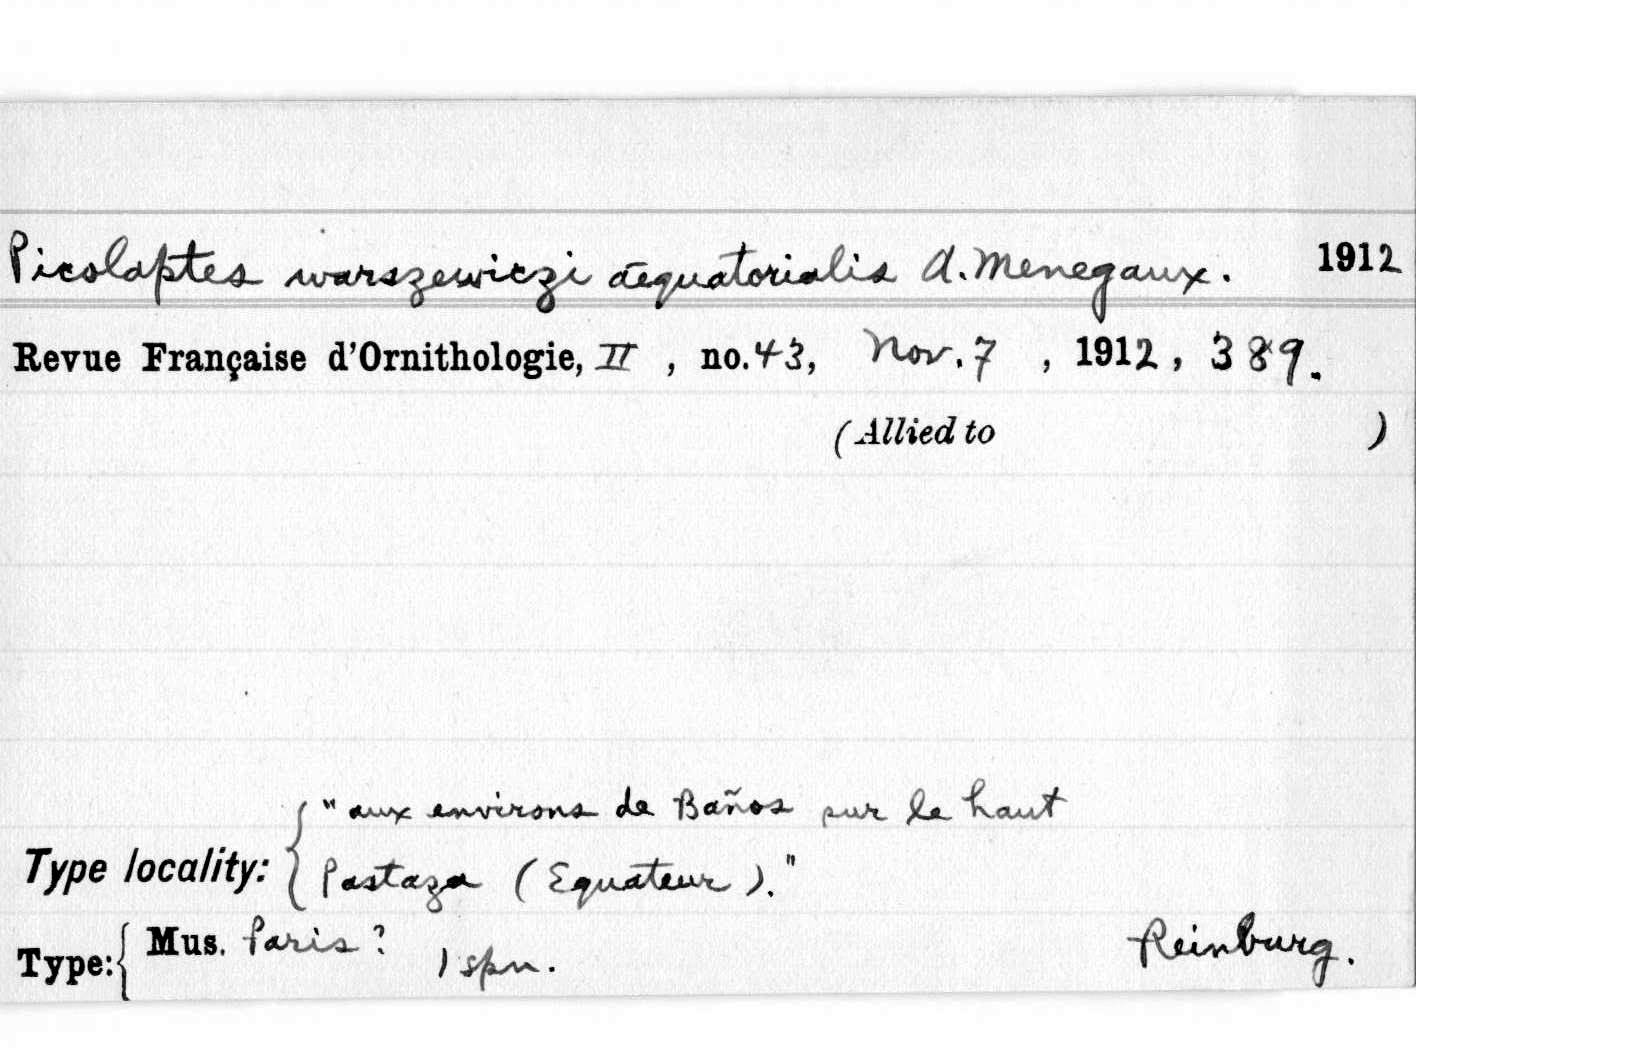 Picolaptes warszewiczi aequatorialis A. Menegaux. 1912
Revue Française d'Ornithologie, II , no. 43, Nov. 7 , 1912, 389.
(Allied to )
"aux environs de Baños sur le haut
Type locality: Pastaza (Equateur)."
Type: Mus. Paris? 1 spn. Reinburg.